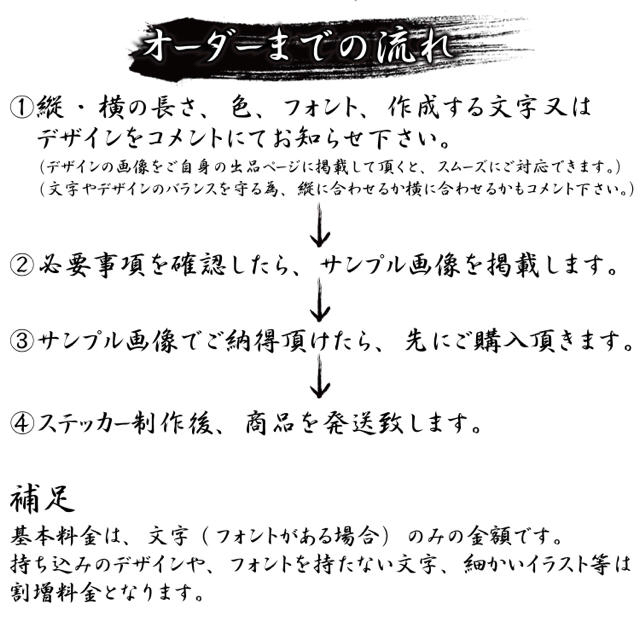 オーダーまでの流れ
①縦・横の長さ、色、フォント、作成する文字又は
デザインをコメントにてお知らせ下さい。
(デザインの画像をご自身の出品ページに掲載して頂くと、スムーズにご対応できます。)
(文字やデザインのバランスを守る為、縦に合わせるか横に合わせるかもコメント下さい。)
②必要事項を確認したら、サンプル画像を掲載します。
③サンプル画像でご納得頂けたら、先にご購入頂きます。
④ステッカー制作後、商品を発送致します。
補足
基本料金は、文字(フォントがある場合)のみの金額です。
持ち込みのデザインや、フォントを持たない文字、細かいイラスト等は
割増料金となります。